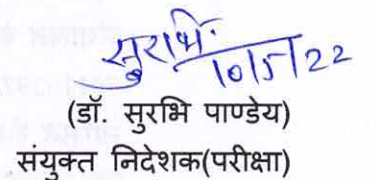 सुरभि
10/5/22
(डॉ. सुरभि पाण्डेय)
संयुक्त निदेशक(परीक्षा)